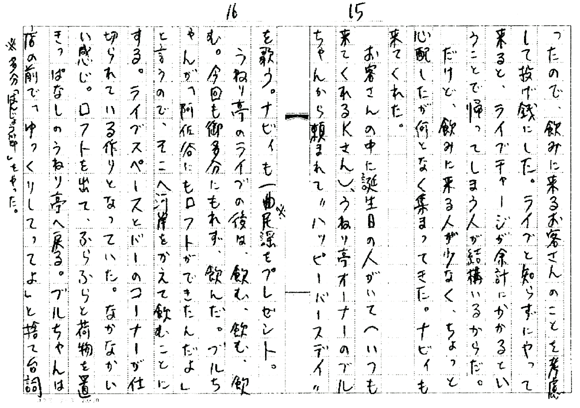 15
ったので、飲みに来るお客さんのことを考慮
して投げ銭にした。ライブと知らずにやって
来ると、ライブチャージが余計にかかるとい
うことで帰ってしまう人が結構いるからだ。
だけど、飲みに来る人が少なく、ちょっと
心配したが何となく集まってきた。ナビィも
来てくれた。
お客さんの中に誕生日の人がいて(いつも
来てくれるKさん)うねり亭オーナーのブル
ちゃんから頼まれて"ハッピーバースデイ"
16
を歌う。ナビィも一曲民謡をプレゼント。※
うねり亭のライブの後は、飲む、飲む、飲
む。今回も御多分にもれず、飲んだ。ブルち
ゃんが「阿佐谷にもロフトができたんだよ」
と言うので、そこへ河岸をかえて飲むことに
する。ライブスペースとバーのコーナーが仕
切られている作りとなっていた。なかなかい
い感じ。ロフトを出て、ふらふらと荷物を置
きっぱなしのうねり亭へ戻る。ブルちゃんは
店の前で、「ゆっくりしてってよ」と捨て台詞
※多分「」をやった。